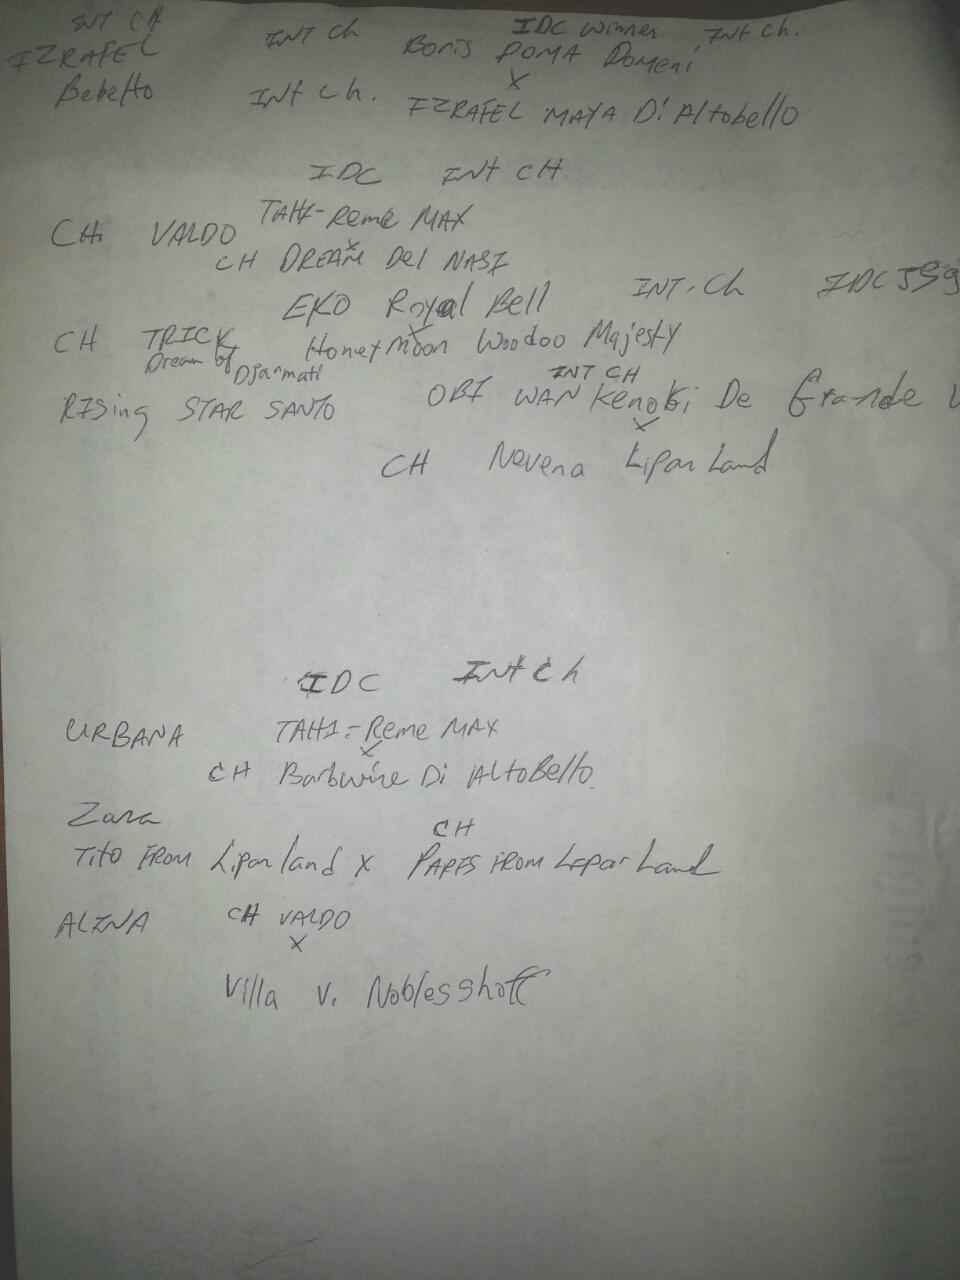 INT CH INT Ch IDC winner Int ch.
IZRAFEL Boris DOMA Domeni
x
Bebetto INT Ch. IZRAFEL MAYA Di Altobello
IDC INT CH
CH. VALDO TAH1-Reme MAX
x
CH DREAM Del NASI
EKO Royal Bell INT. Ch IDC
x
CH TRICK Honey Moon Woodoo Majesty
Dream of Djarmati INT CH
RISing STAR SANTO OBI WAN KenoBi De Grande
x
CH Nevena Lipar Land
IDC INT Ch
URBANA TAH1-Reme MAX
x
CH Barbwire Di AltoBello.
Zara CH
Tito FROM Lipar land x PARIS FROM Lepar Land
ALINA CH VALDO
x
Villa V. Noblesshoff